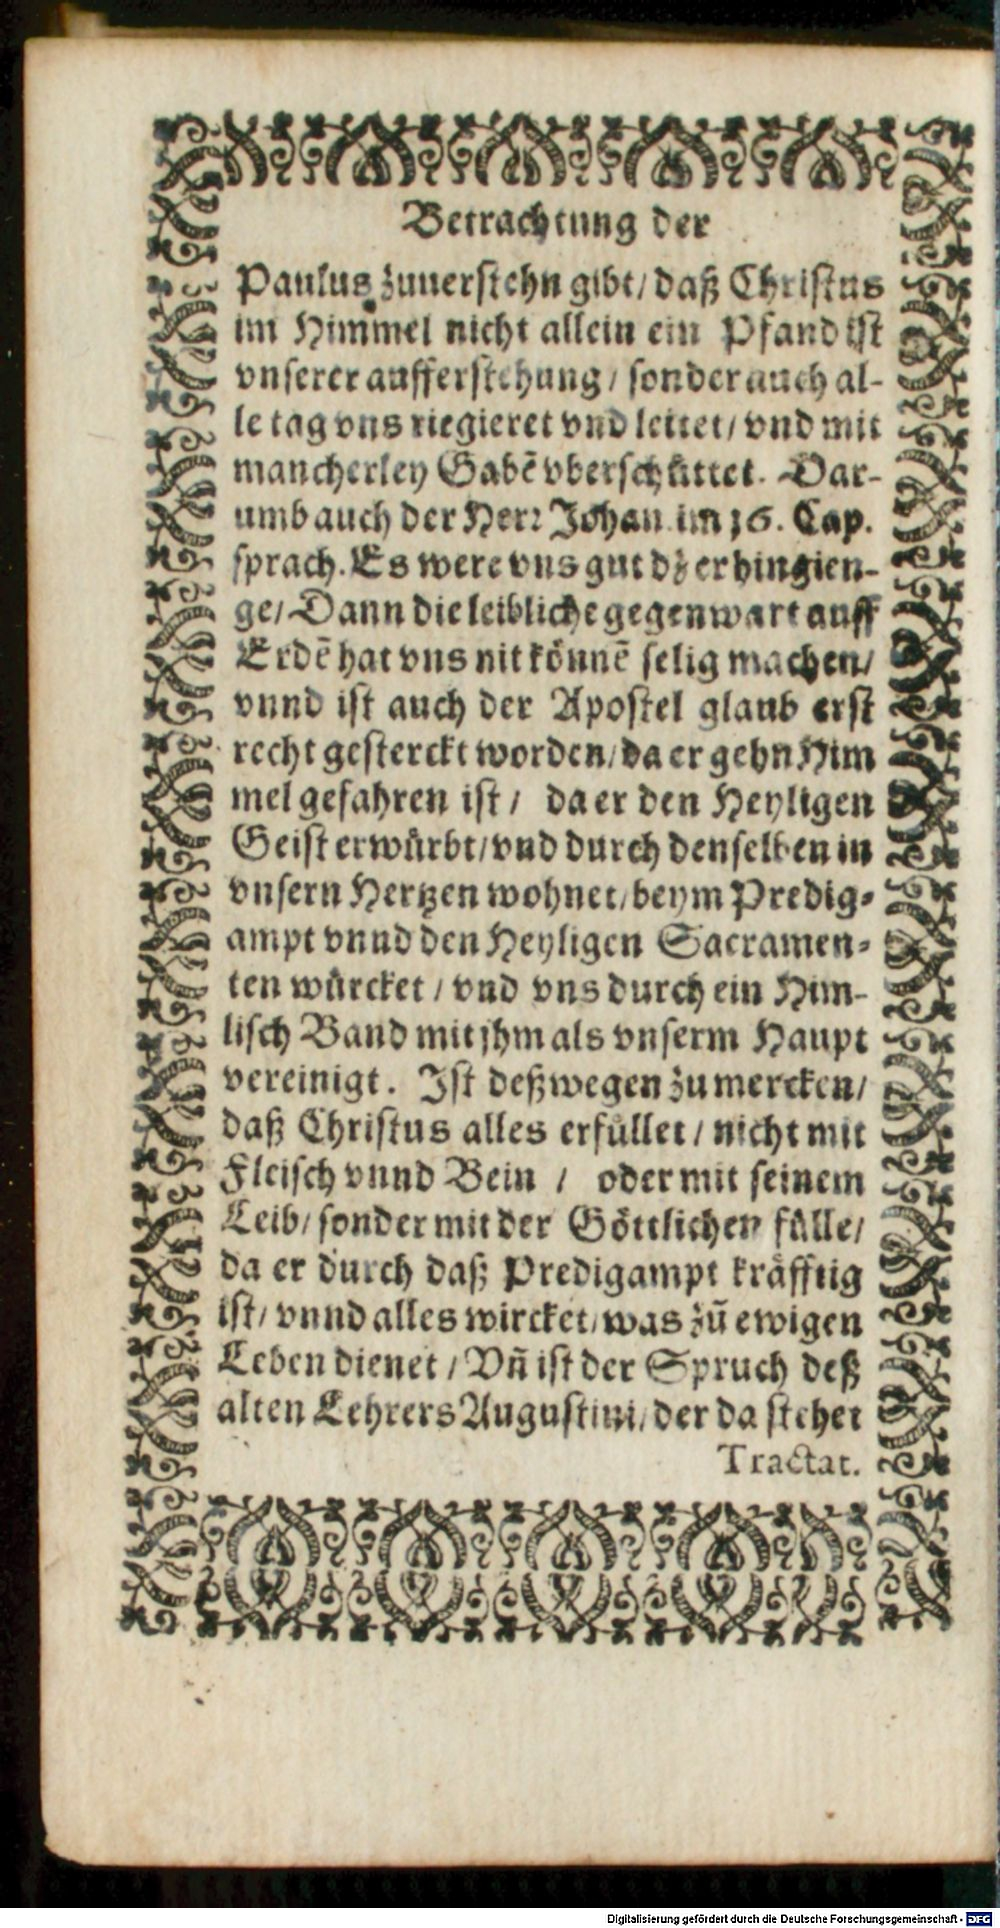 Betrachtung der
Paulus zuuerstehn gibt/ daß Christus
im Himmel nicht allein ein Pfand ist
vnserer aufferstehung/ sonder auch al-
le tag vns riegieret vnd leitet/ vnd mit
mancherley Gabē vberschüttet. Dar-
umb auch der Herr Johan. im 16. Cap.
sprach. Es were vns gut dz er hingien-
ge/ Dann die leibliche gegenwart auff
Erdē hat vns nit könnē selig machen/
vnnd ist auch der Apostel glaub erst
recht gesterckt worden/ da er gehn Him
mel gefahren ist/ da er den Heyligen
Geist erwürbt/ vnd durch denselben in
vnsern Hertzen wohnet/ beym Predig-
ampt vnnd den Heyligen Sacramen-
ten würcket/ vnd vns durch ein Him-
lisch Band mit jhm als vnserm Haupt
vereinigt. Ist deßwegen zu mercken/
daß Christus alles erfüllet/ nicht mit
Fleisch vnnd Bein / oder mit seinem
Leib/ sonder mit der Göttlichen fülle/
da er durch daß Predigampt kräfftig
ist/ vnnd alles wircket/ was zū ewigen
Leben dienet/ Vn̄ ist der Spruch deß
alten Lehrers Augustini/ der da stehet
Tractat.
Digitalisierung gefördert durch die Deutsche Forschungsgemeinschaft - DFG